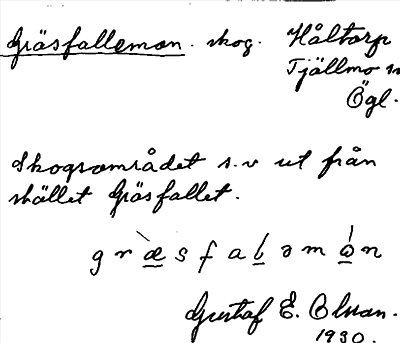 Gräsfallemon. skog. Håltorp
Tjällmo sn
Ögl.
Skogsområdet s.v ut från
stället Gräsfallet.
g r æ̀ s f a l ə m ó n
Gustaf E. Olsson.
1930.